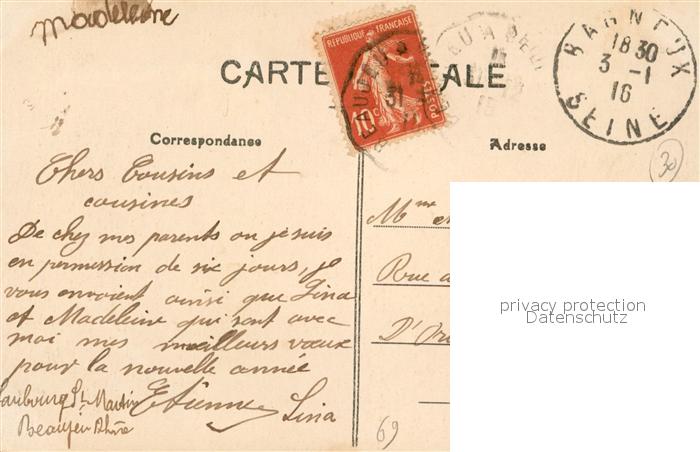 Madeleine
CARTE POSTALE
REPUBLIQUE FRANÇAISE
10c
POSTES
BEAUJEU
31
BAGNEUX
18 30
3 -1
16
SEINE
Correspondance
Adresse
30
Chers Cousins et
cousines
De chez mes parents ou je suis
en permission de six jours, je
vous envoient ainsi que Lina
et Madeleine qui sont avec
moi mes meilleurs vœux
pour la nouvelle année
Etienne Lina
Faubourg St Martin
Beaujeu Rhône
Mme
Rue
D'
69
privacy protection
Datenschutz